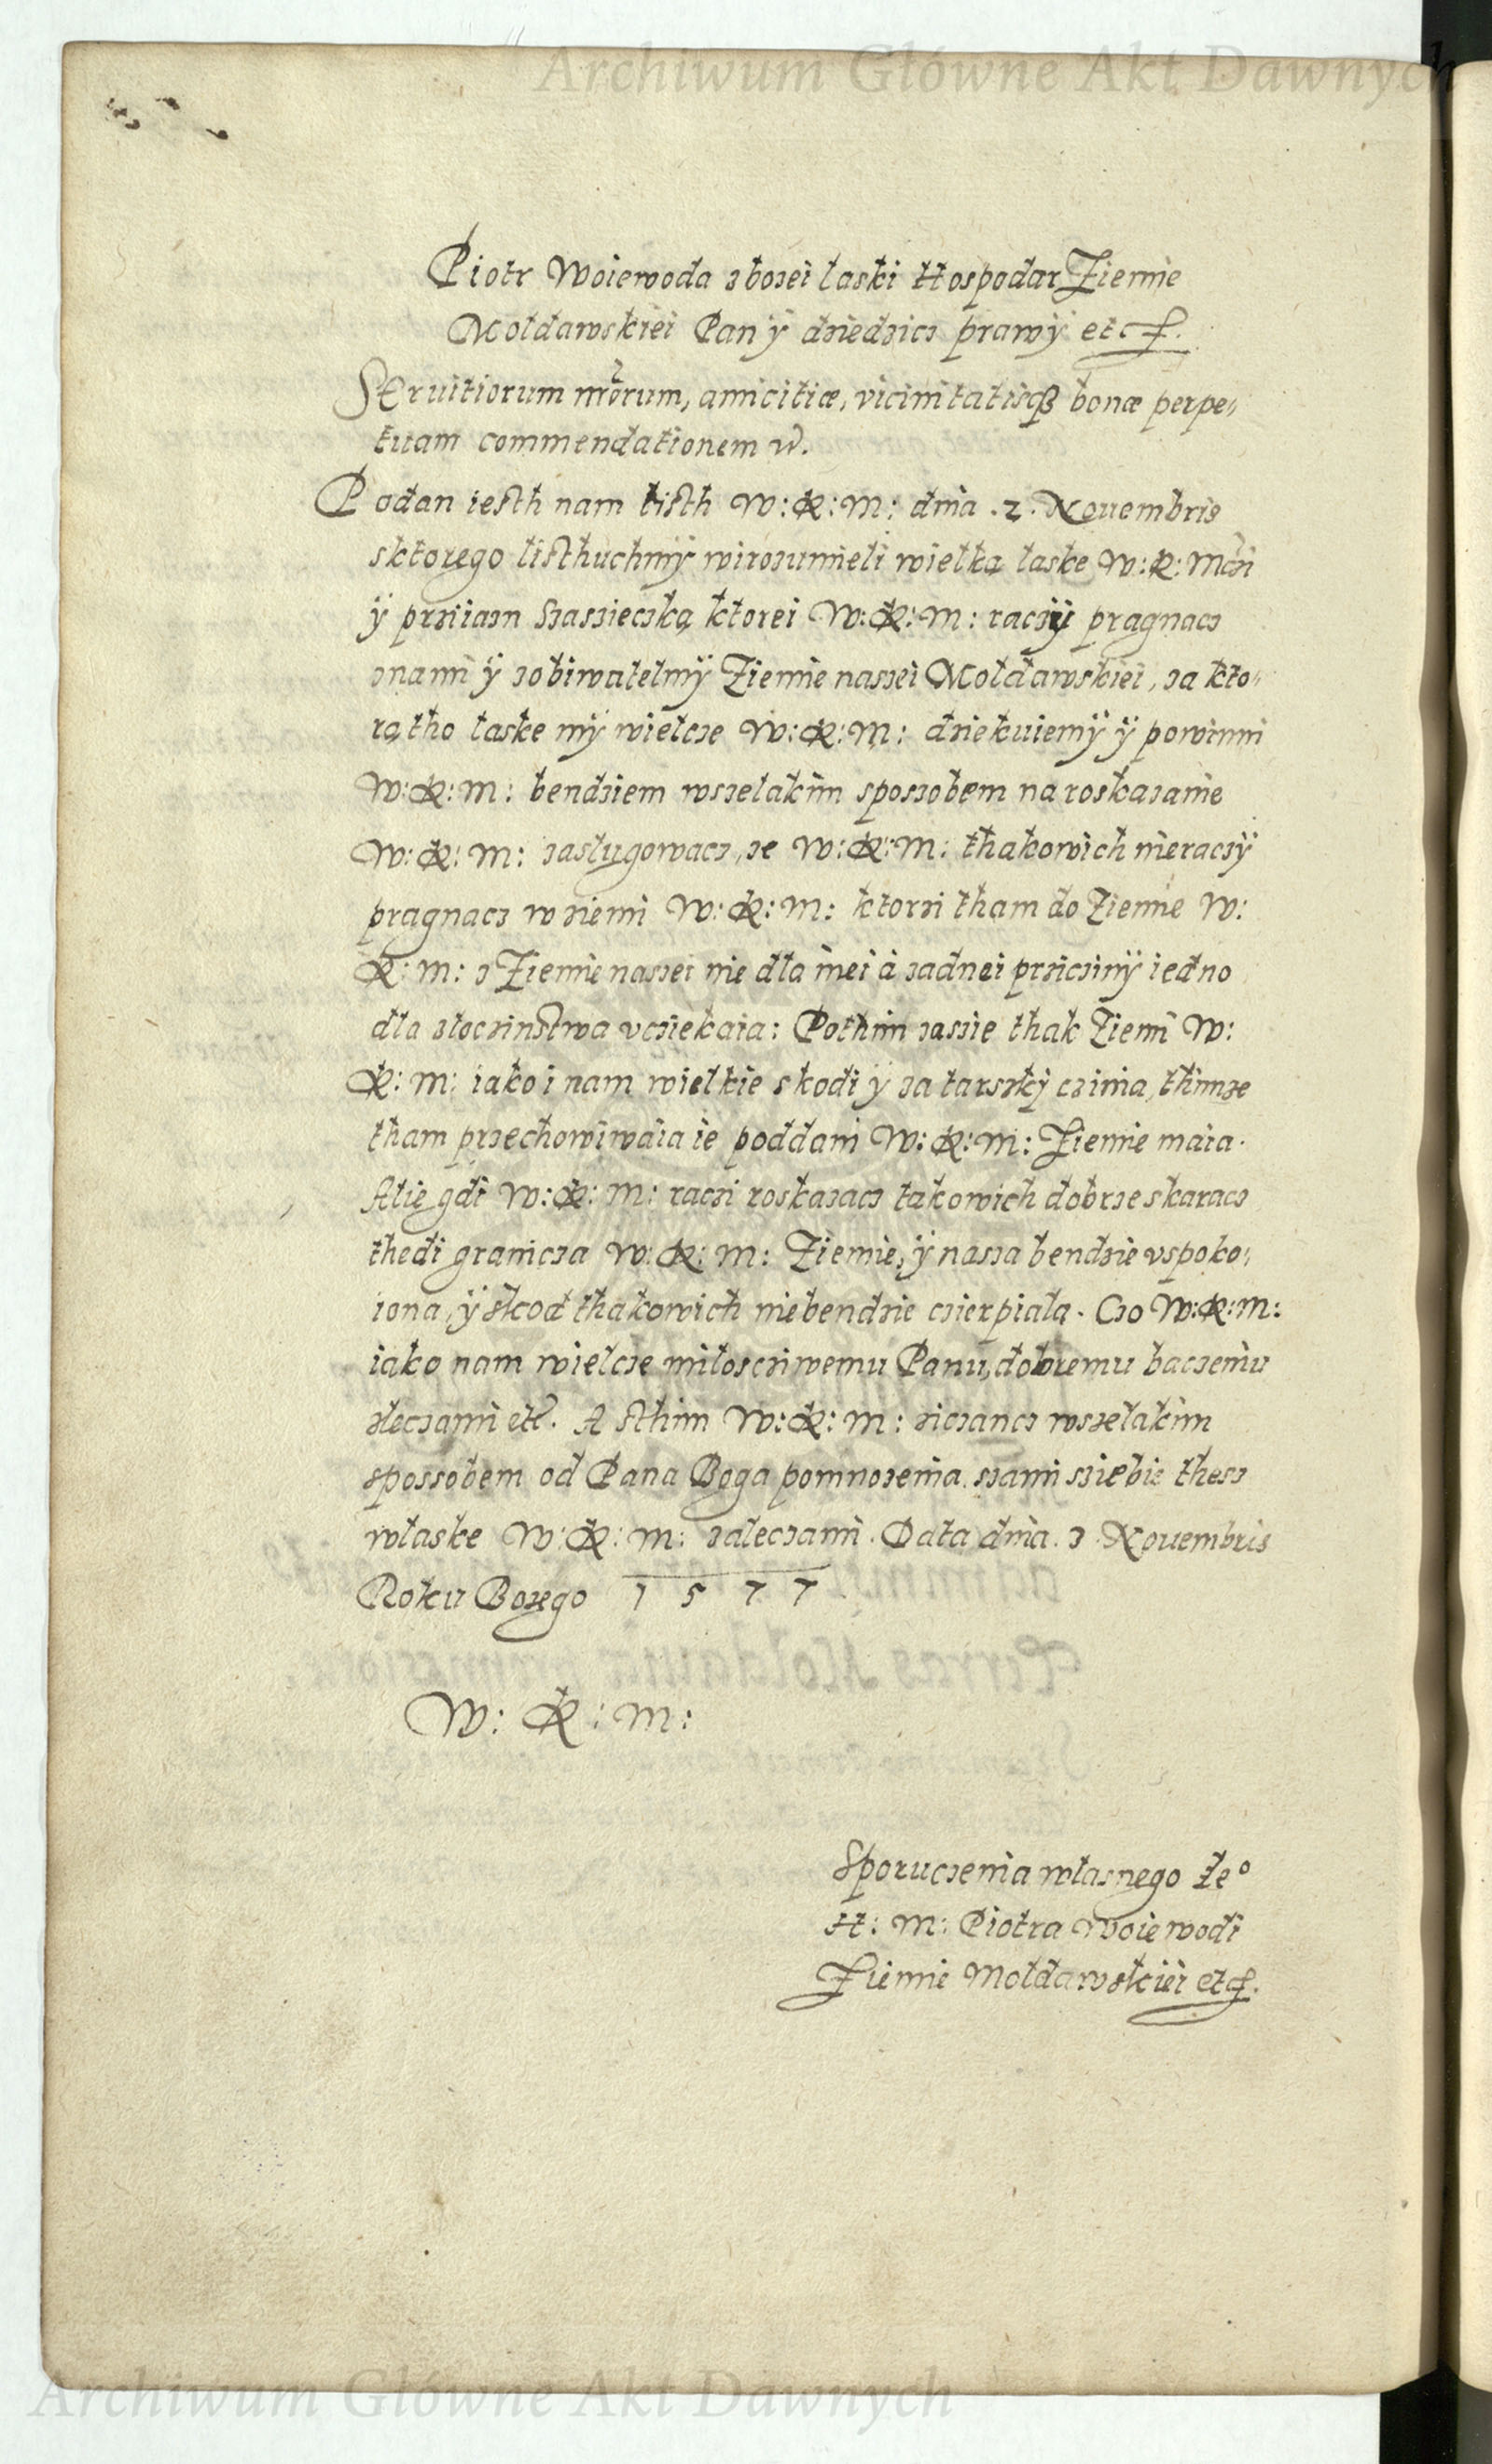 Archiwum Główne Akt Dawnych
Piotr Woiewoda z bozei laski Hospodar Ziemie
Moldawskiei Pan ÿ dziedzicz prawÿ etc.
SEruitiorum nrorum, amicitiæ, vicinitatisq3 bonæ perpe„
tuam commendationem
Podan iesth nam listh W: K: M: dnia .2. Nouembris
sktorego listhuchmÿ wirozumieli wielką laske W: K: Mczi
ÿ prziiazn Szaszieczką ktorei W: K: M: raczÿ pragnacz
znami ÿ zobiwatelmÿ Ziemie naszei Moldawskiei, za kto„
rą tho laske mÿ wielcze W: K: M: dziekuiemÿ ÿ powinni
W: K: M: bendziem wszelakim sposzobem na roskazanie
W: K: M: zaslugowacz, ze W: K: M: thakowich nieraczÿ
pragnacz w ziemi W: K: M: ktorzi tham do Ziemie W:
K: M: z Ziemie naszei nie dla inei a zadnei prziczinÿ iedno
dla zloczinstwa vcziekaia: Pothim zaszie thak Ziemi W:
K: M: iako i nam wielkie skodi ÿ za tarszkÿ czinia, thimze
tham przechowiwaia ie poddani W: K: M: Ziemie maia.
Alie gdi W: K: M: raczi roskazacz takowich dobrze skaracz
thedi granicza W: K: M: Ziemie, ÿ nasza bendzie vspoko„
iona, ÿ skod thakowich niebendzie czierpiala. Czo W: K: M:
iako nam wielcze milosciwemu Panu, dobremu baczeniu
zleczami etc. A sthim W: K: M: ziczancz wszelakim
spossobem od Pana Boga pomnozenia. szami sziebie thesz
wlaske W: K: M: zaleczami. Data dnia .3. Nouembris
Roku Bozego 1 5 7 7
W: K: M:
Sporuczenia wlasnego Jeº
H: M: Piotra Woiewodi
Ziemie Moldawskiei etc.
Archiwum Główne Akt Dawnych